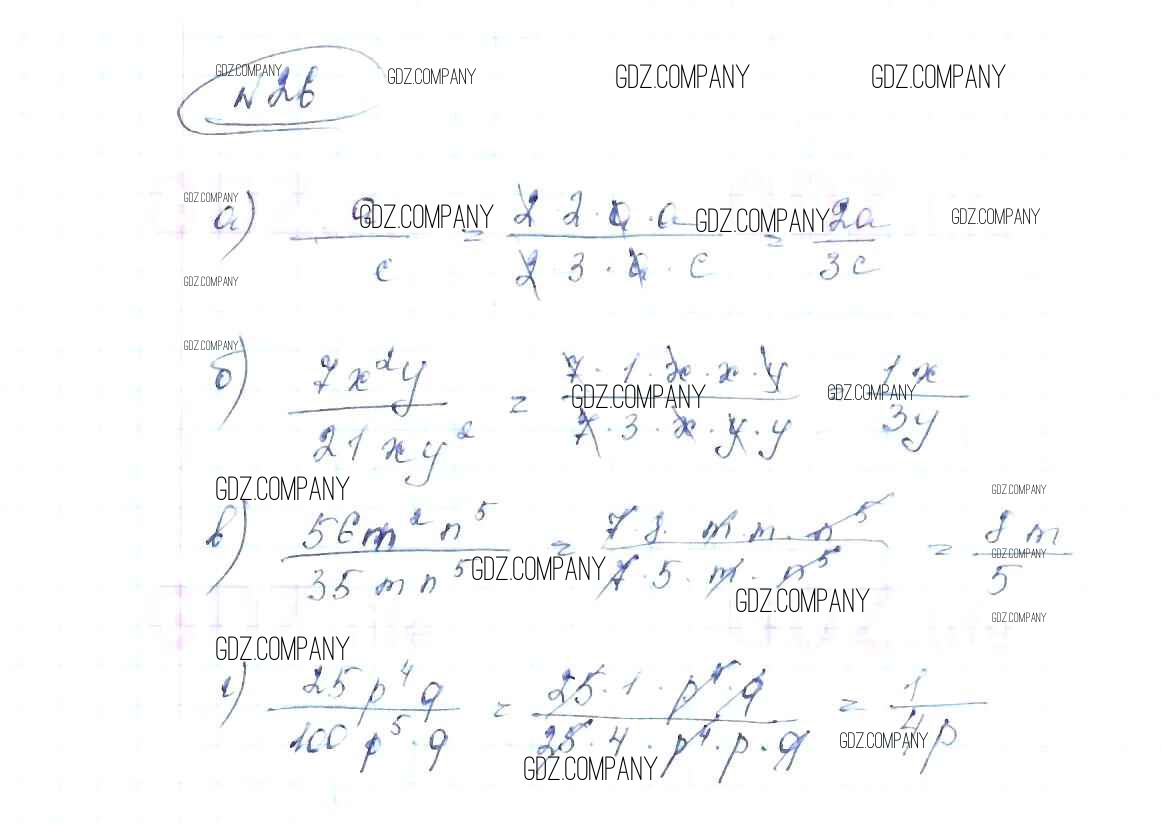 GDZ.COMPANY GDZ.COMPANY GDZ.COMPANY GDZ.COMPANY
№26
GDZ.COMPANY
а) / c = 2 2·a·a / 2 3·a·c = 2a / 3c
GDZ.COMPANY GDZ.COMPANY GDZ.COMPANY
GDZ.COMPANY
GDZ.COMPANY
б) 7x²y / 21xy² = 7·1·x·x·y / 7·3·x·y·y = 1x / 3y
GDZ.COMPANY GDZ.COMPANY
GDZ.COMPANY GDZ.COMPANY
в) 56m²n⁵ / 35mn⁵ = 7·8·m·m·n⁵ / 7·5·m·n⁵ = 8m / 5
GDZ.COMPANY GDZ.COMPANY
GDZ.COMPANY GDZ.COMPANY
GDZ.COMPANY
г) 25p⁴q / 100p⁵·q = 25·1·p⁴·q / 25·4·p⁴·p·q = 1 / 4p
GDZ.COMPANY
GDZ.COMPANY